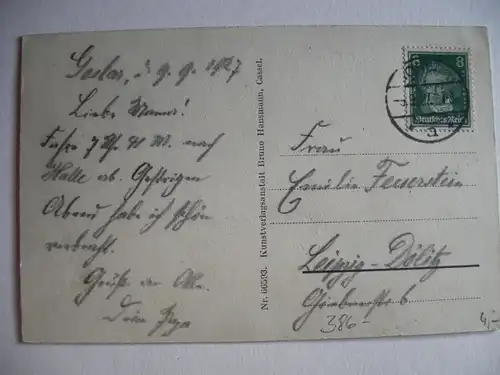 Goslar, d 9. 9. 1927
Liebe Mama!
Fahre 7 Uh. 41 M. nach
Halle ab. Gestrigen
Abend habe ich schön
verbracht.
Grüße an Alle.
Dein
Nr. 66593. Kunstverlagsanstalt Bruno Hansmann, Cassel.
8
Deutsches Reich
Frau
Emilie Feuerstein
Leipzig-Dölitz
6
386-
4,-